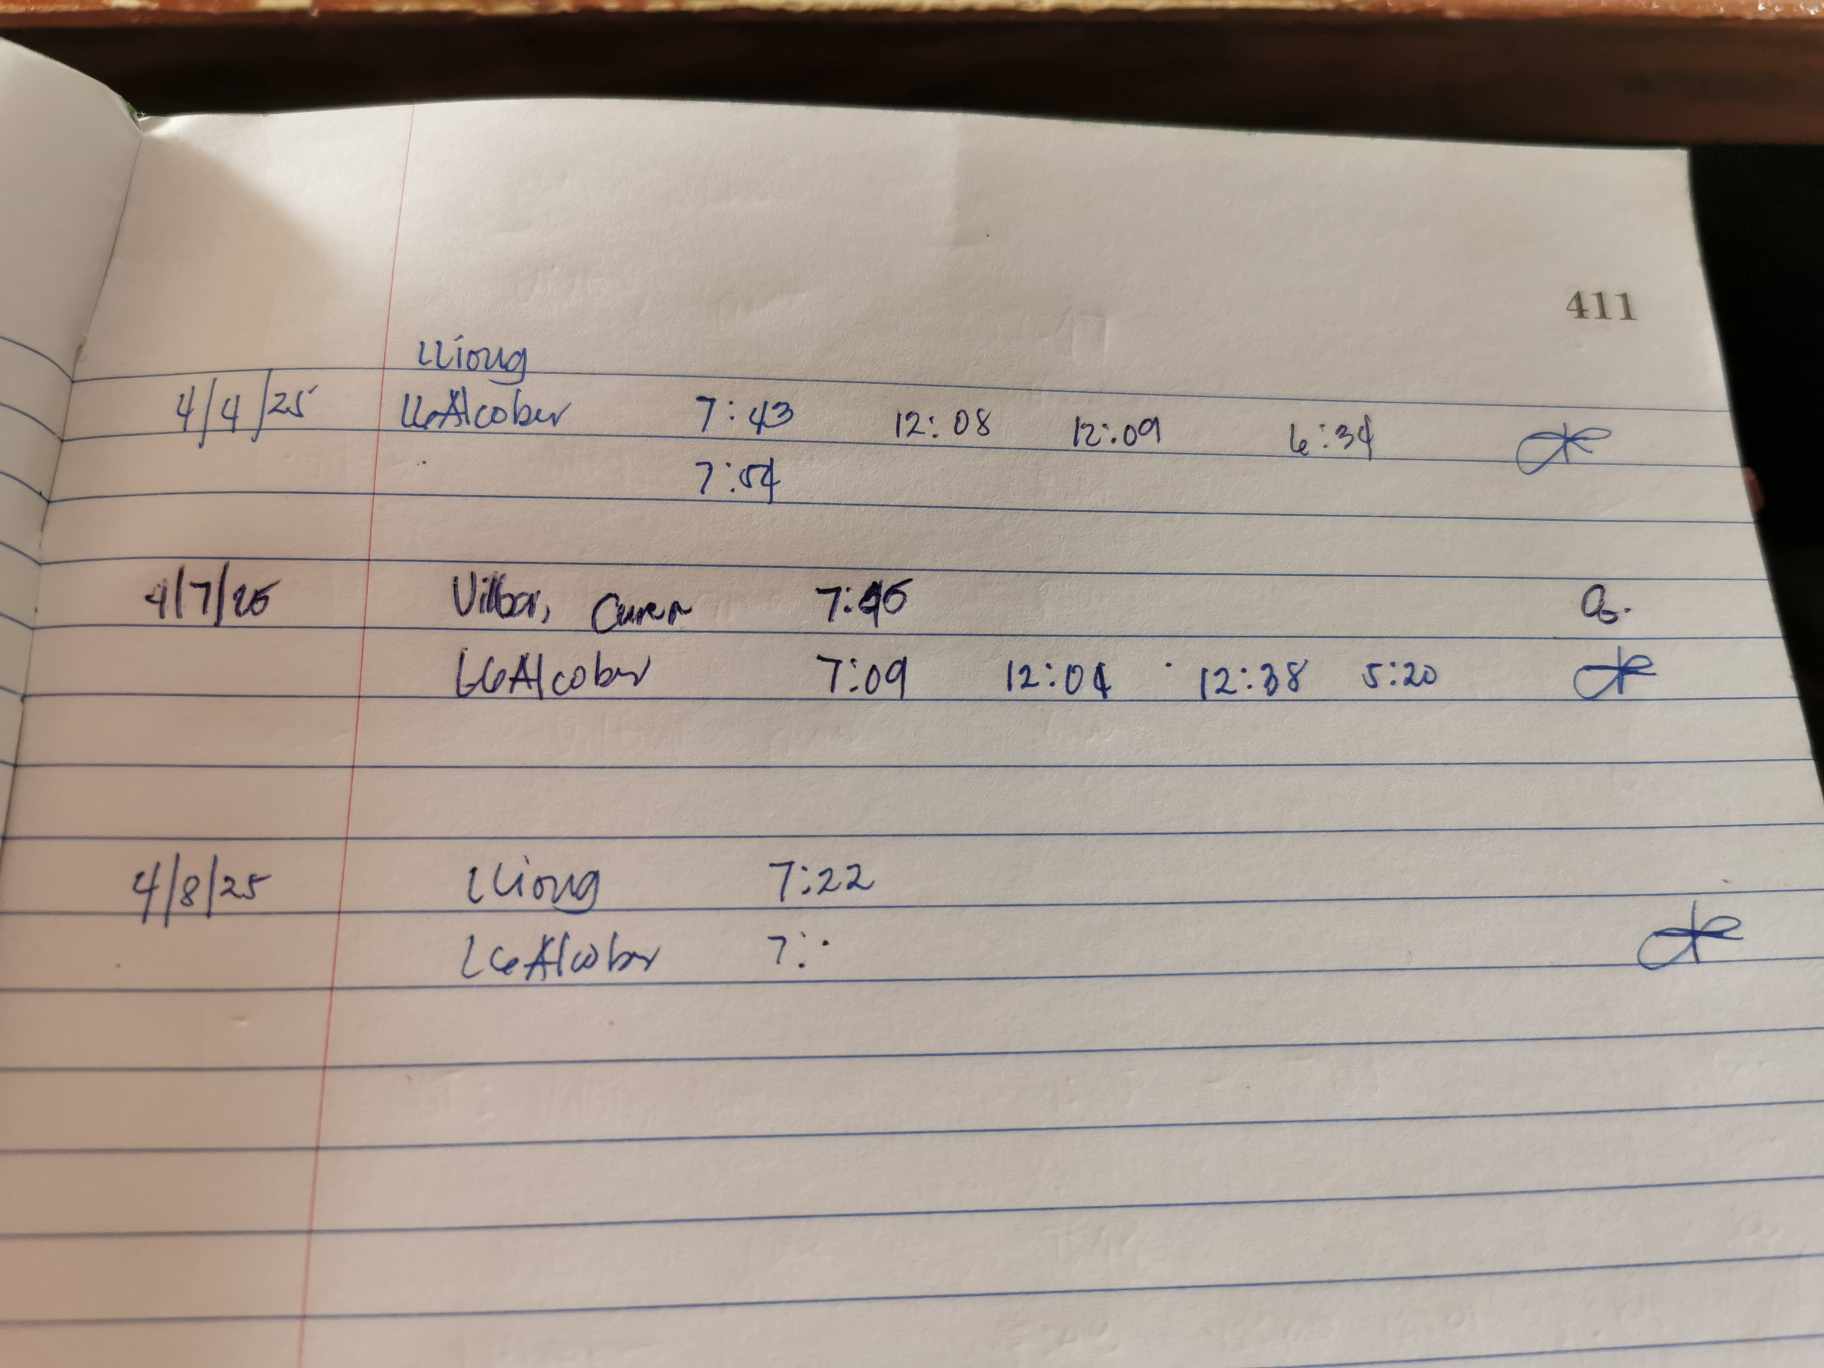 411
LLiong
4/4/25 LGAlcober 7:43 12:08 12:09 6:34
7:54
4/7/25 Villar, 7:45
LGAlcober 7:09 12:04 12:38 5:20
4/8/25 LLiong 7:22
LGAlcober 7: